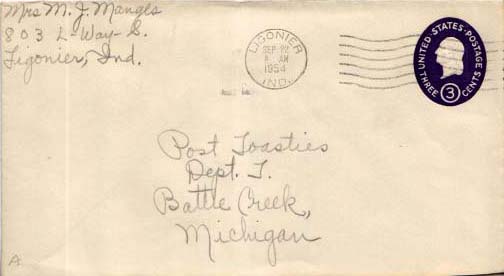 Mrs M. J. Manges
803 L-Way-S.
Ligonier, Ind.
LIGONIER
SEP 22
AM
1954
IND.
UNITED·STATES·POSTAGE
THREE 3 CENTS
Post Toasties
Dept. T.
Battle Creek,
Michigan
A